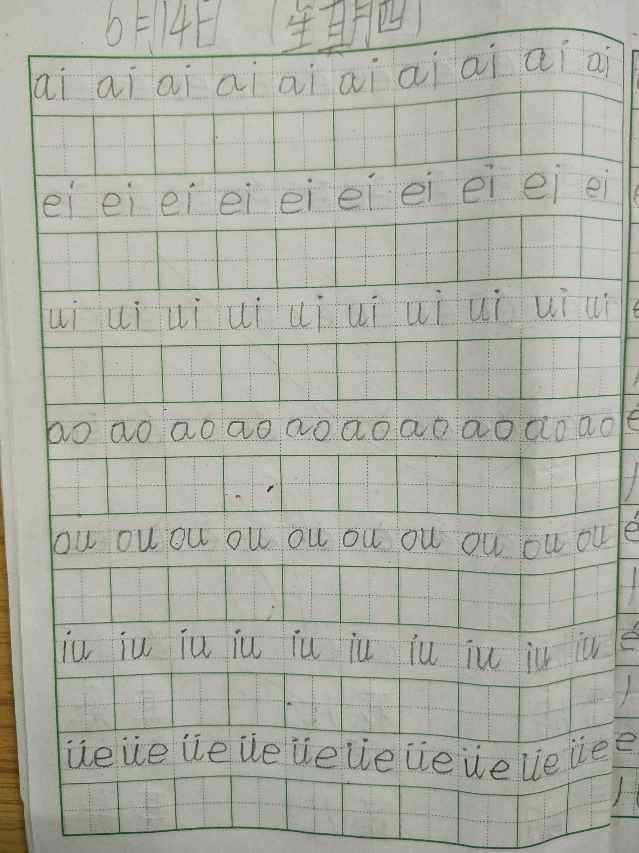 6月14日 (星期四)
ai ai ai ai ai ai ai ai ai ai
ei ei ei ei ei ei ei ei ei ei
ui ui ui ui ui ui ui ui ui ui
ao ao ao ao ao ao ao ao ao ao
ou ou ou ou ou ou ou ou ou ou
iu iu iu iu iu iu iu iu iu iu
üe üe üe üe üe üe üe üe üe üe